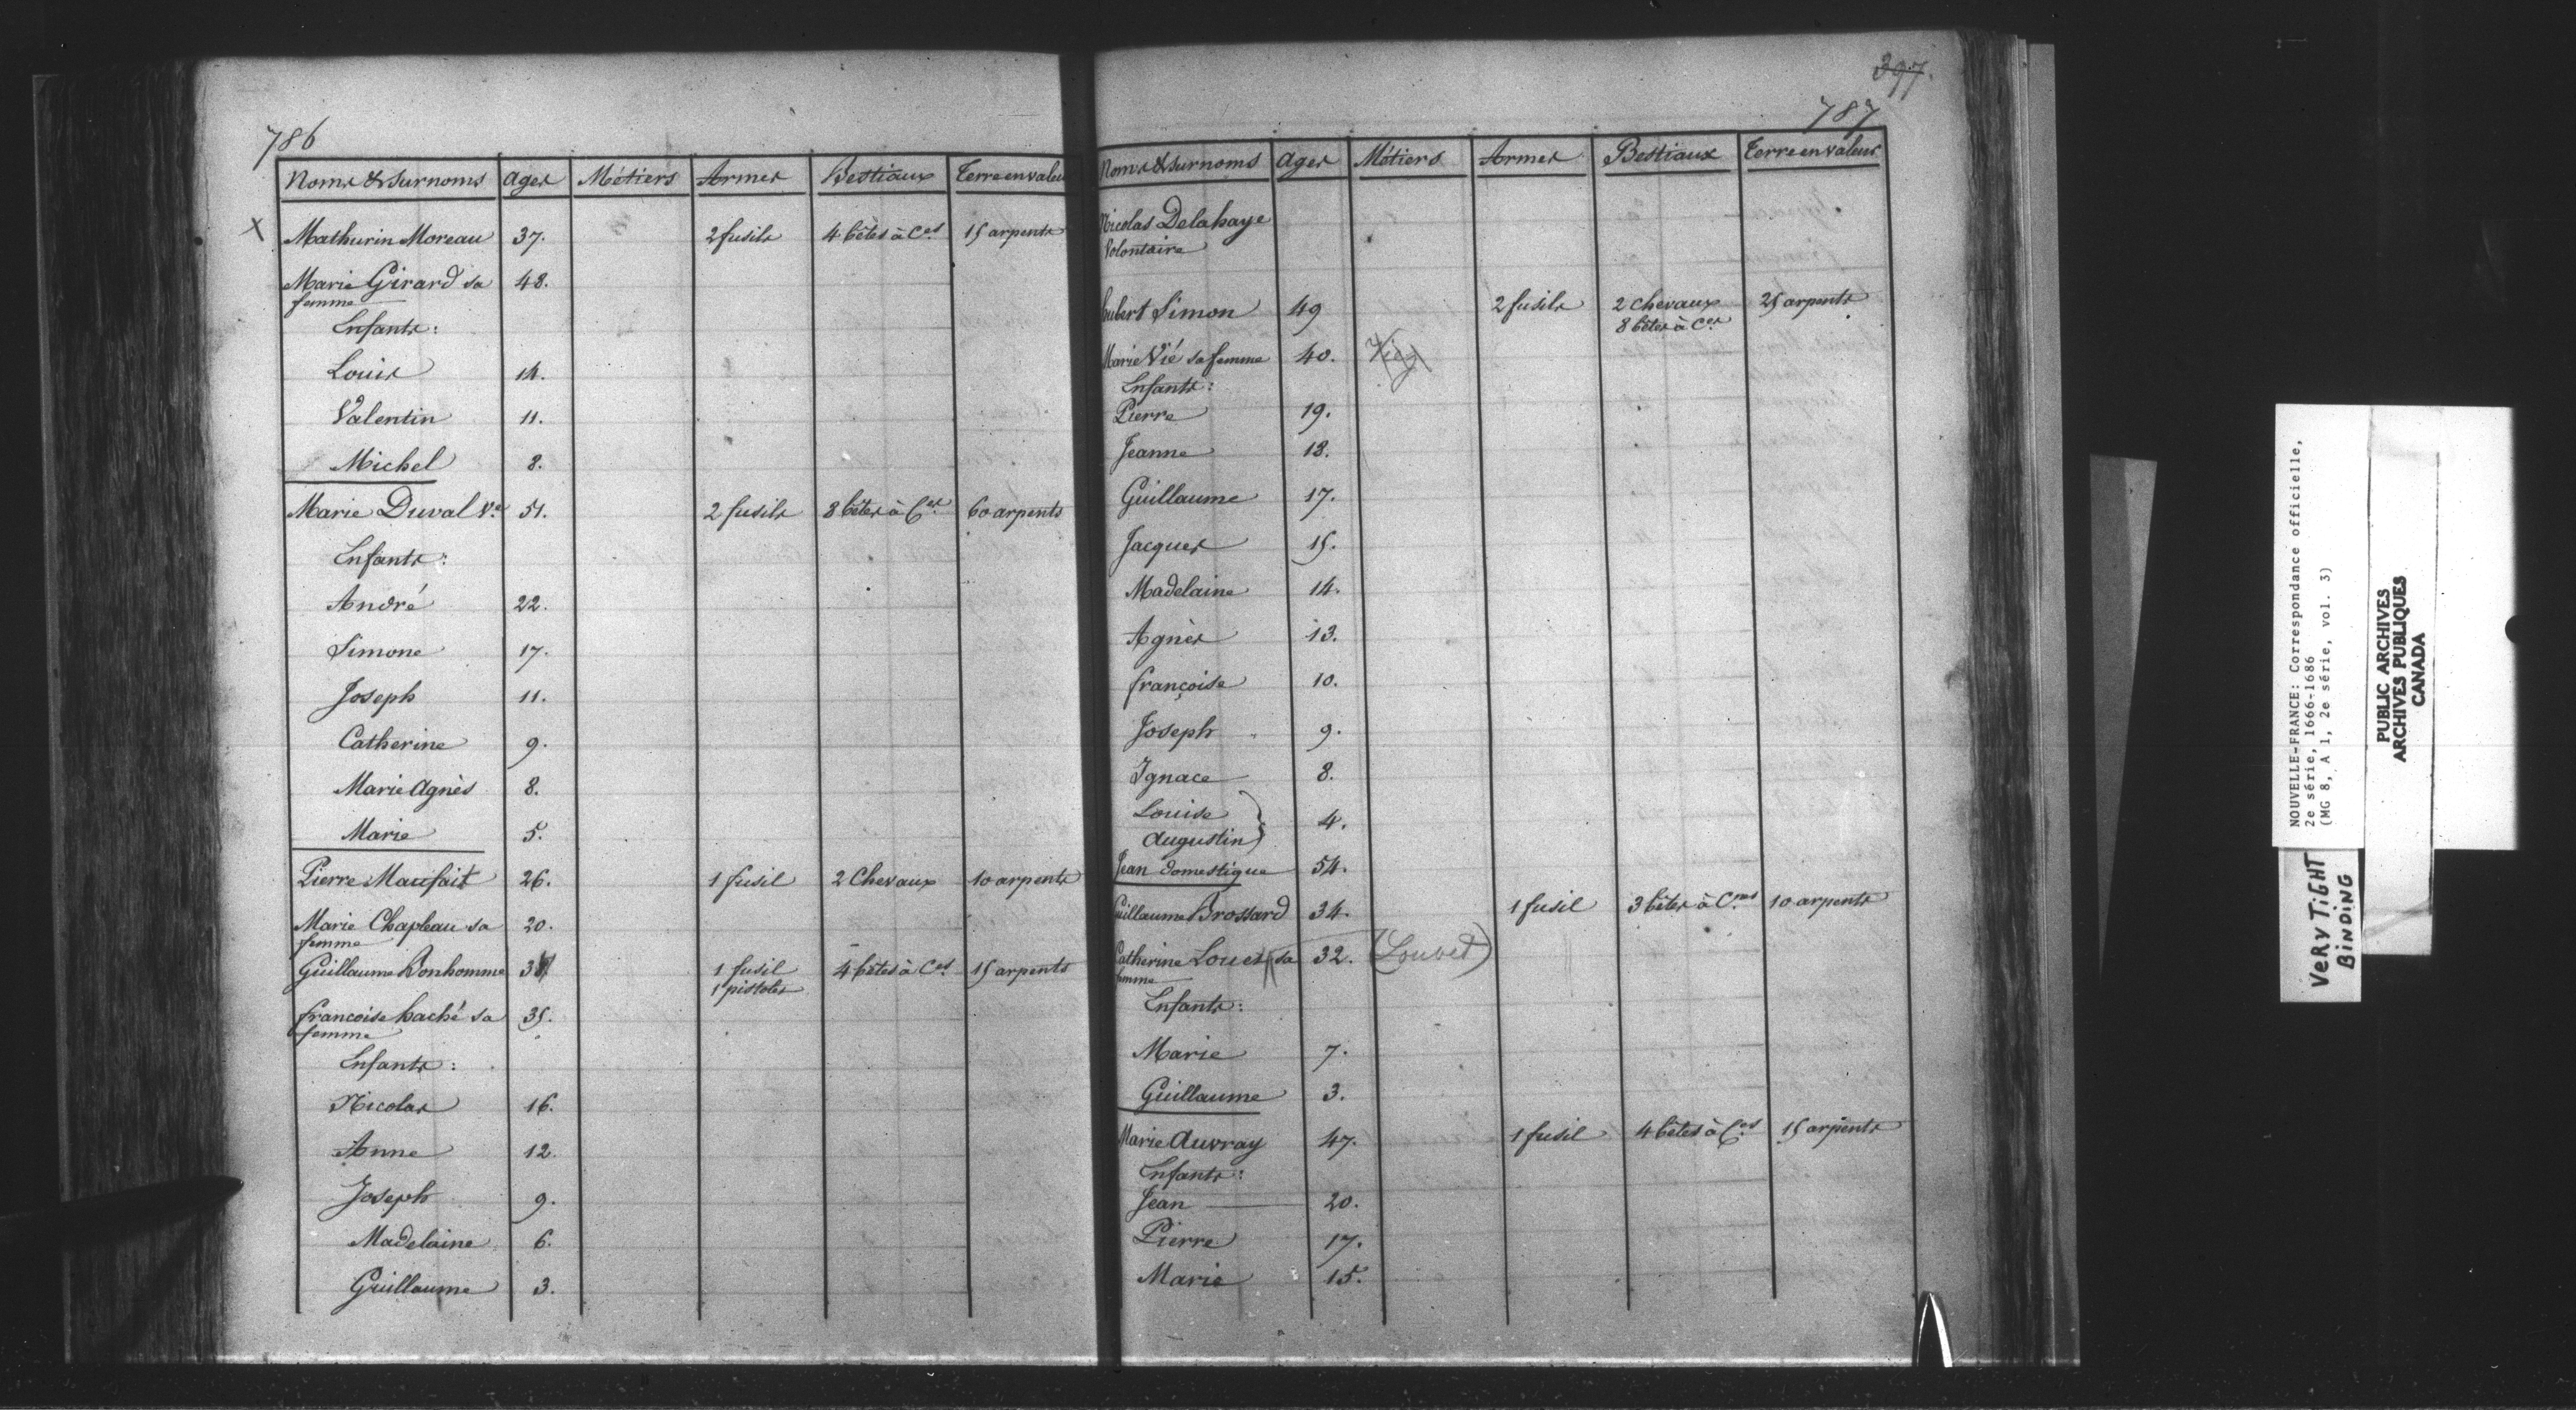 786
Noms & surnoms Ages Métiers Armes Bestiaux Terre en valeur
X Mathurin Moreau 37. 2 fusils 4 bêtes à Ces 15 arpents
Marie Girard sa 48.
femme
Enfants:
Louis 14.
Valentin 11.
Michel 8.
Marie Duval Ve 51. 2 fusils 8 bêtes à Ces 60 arpents
Enfants:
André 22.
Simone 17.
Joseph 11.
Catherine 9.
Marie Agnès 8.
Marie 5.
Pierre Maufait 26. 1 fusil 2 Chevaux 10 arpents
Marie Chapleau sa 20.
femme
Guillaume Bonhomme 1 fusil 4 bêtes à Ces 15 arpents
1 pistolet
francoise haché sa 35.
femme
Enfants:
Nicolas 16.
Anne 12.
Joseph 9.
Madelaine 6.
Guillaume 3.
397.
787
Noms & surnoms Ages Métiers Armes Bestiaux Terre en valeur
Nicolas Delahaye
Volontaire
hubert Simon 49 2 fusils 2 Chevaux 25 arpents
8 bêtes à Ces
Marie Vié sa femme 40.
Enfants:
Pierre 19.
Jeanne 18.
Guillaume 17.
Jacques 15.
Madelaine 14.
Agnès 13.
françoise 10.
Joseph 9.
Ignace 8.
Louise
Augustin } 4.
Jean domestique 54.
Guillaume Brossard 34. 1 fusil 3 bêtes à Cnes 10 arpents
Catherine Louet sa 32. (Louvet)
femme
Enfants:
Marie 7.
Guillaume 3.
Marie Auvray 47. 1 fusil 4 bêtes à Ces 15 arpents
Enfants:
Jean 20.
Pierre 17.
Marie 15.
NOUVELLE-FRANCE: Correspondance officielle,
2e série, 1666-1686
(MG 8, A 1, 2e série, vol. 3)
PUBLIC ARCHIVES
ARCHIVES PUBLIQUES
CANADA
VERY TIGHT
BINDING